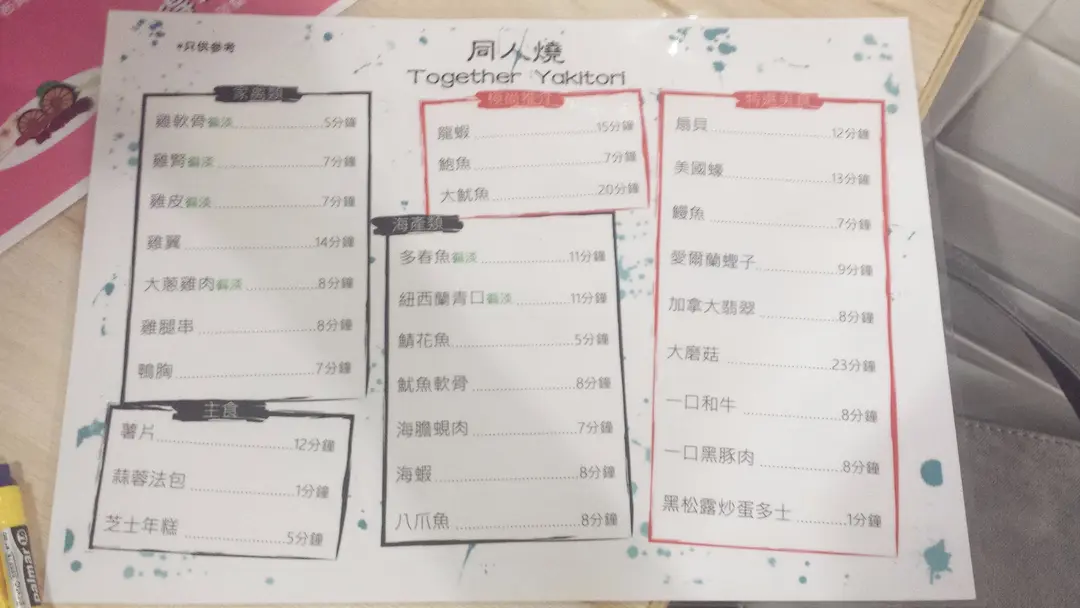 *只供參考
同人燒
Together Yakitori
家禽類
雞軟骨偏淡 5分鐘
雞腎偏淡 7分鐘
雞皮偏淡 7分鐘
雞翼 14分鐘
大蔥雞肉偏淡 8分鐘
雞腿串 8分鐘
鴨胸 7分鐘
主食
薯片 12分鐘
蒜蓉法包 1分鐘
芝士年糕 5分鐘
龍蝦 15分鐘
鮑魚 7分鐘
大魷魚 20分鐘
海產類
多春魚偏淡 11分鐘
紐西蘭青口偏淡 11分鐘
鯖花魚 5分鐘
魷魚軟骨 8分鐘
海膽蜆肉 7分鐘
海蝦 8分鐘
八爪魚 8分鐘
扇貝 12分鐘
美國蠔 13分鐘
鰻魚 7分鐘
愛爾蘭蟶子 9分鐘
加拿大翡翠 8分鐘
大磨菇 23分鐘
一口和牛 8分鐘
一口黑豚肉 8分鐘
黑松露炒蛋多士 1分鐘